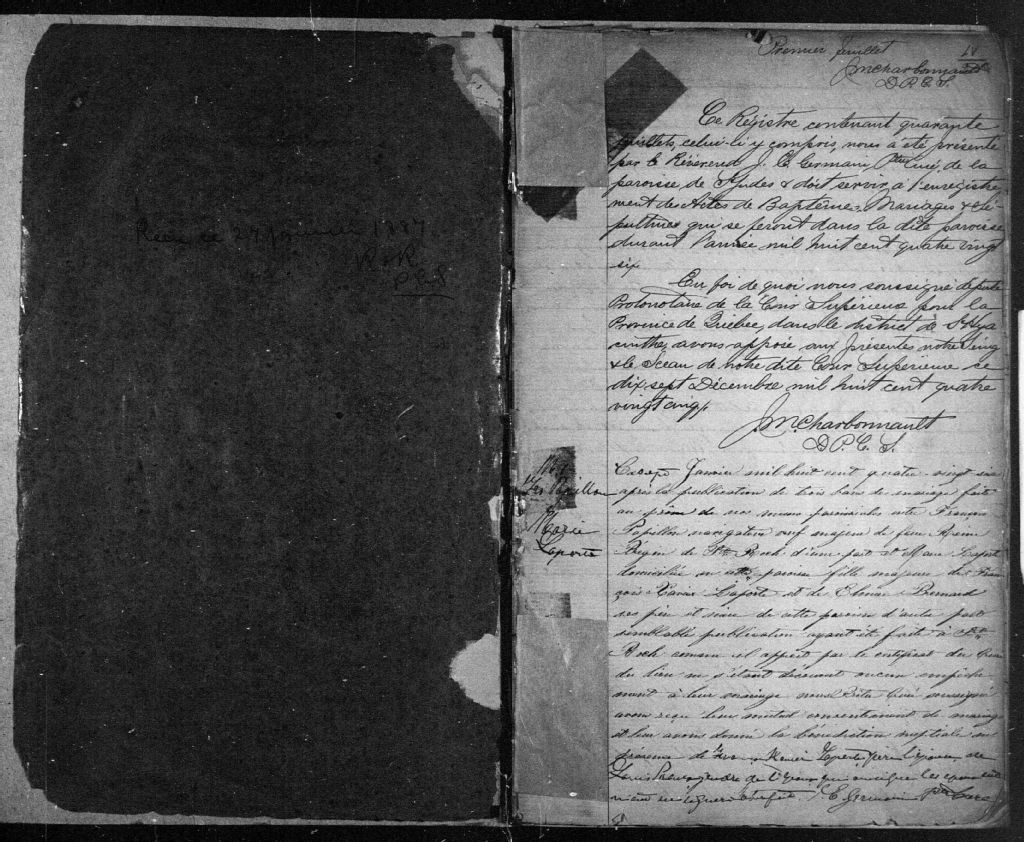 Recu le 27 janvier 1887
Premier feuillet
J McCharbonnault
D P. C. S.
Ce Régistre contenant quarante
feuillets, celui-ci y compris, nous a été présenté
par le Révérend J. E. Germain, Ptre Curé, de la
paroisse de & doit servir a l'enregistre-
ment des Actes de Baptême, Mariages & Sé-
pultures qui se feront dans la dite paroisse
durant l'année mil huit cent quatre vingt
six
En foi de quoi nous soussigné député
Protonotaire de la Cour Supérieure pour la
Province de Québec, dans le district de St Hya
cinthe, avons apposé aux présentes notre Seing
& le Sceau de notre dite Cour Supérieure ce
dix sept Décembre mil huit cent quatre
vingt cinq
J McCharbonnault
D P. C. S.
M 1
Frs Papillon
&
Marie
Laporte
Janvier mil huit cent quatre vingt six
après la publication de trois bans de mariage fait
au prône de nos messes paroissiales entre François
Papillon navigateur veuf majeur de feue
de St Roch d'une part et Marie Laporte
domiciliée en cette paroisse fille majeure de Fran
çois Xavier Laporte et de Bernard
ses père et mère de cette paroisse d'autre part
semblable publication ayant été faite à St
Roch comme il appert par le certificat du Curé
du lieu ne s'étant découvert aucun empêche
ment à leur mariage nous Ptre Curé soussigné
avons reçu leur mutuel consentement de mariage
et leur avons donné la bénédiction nuptiale en
présence de Laporte père de l'épouse, de
Louis de l'époux qui
n'ont su signer J E. Germain Ptre Curé